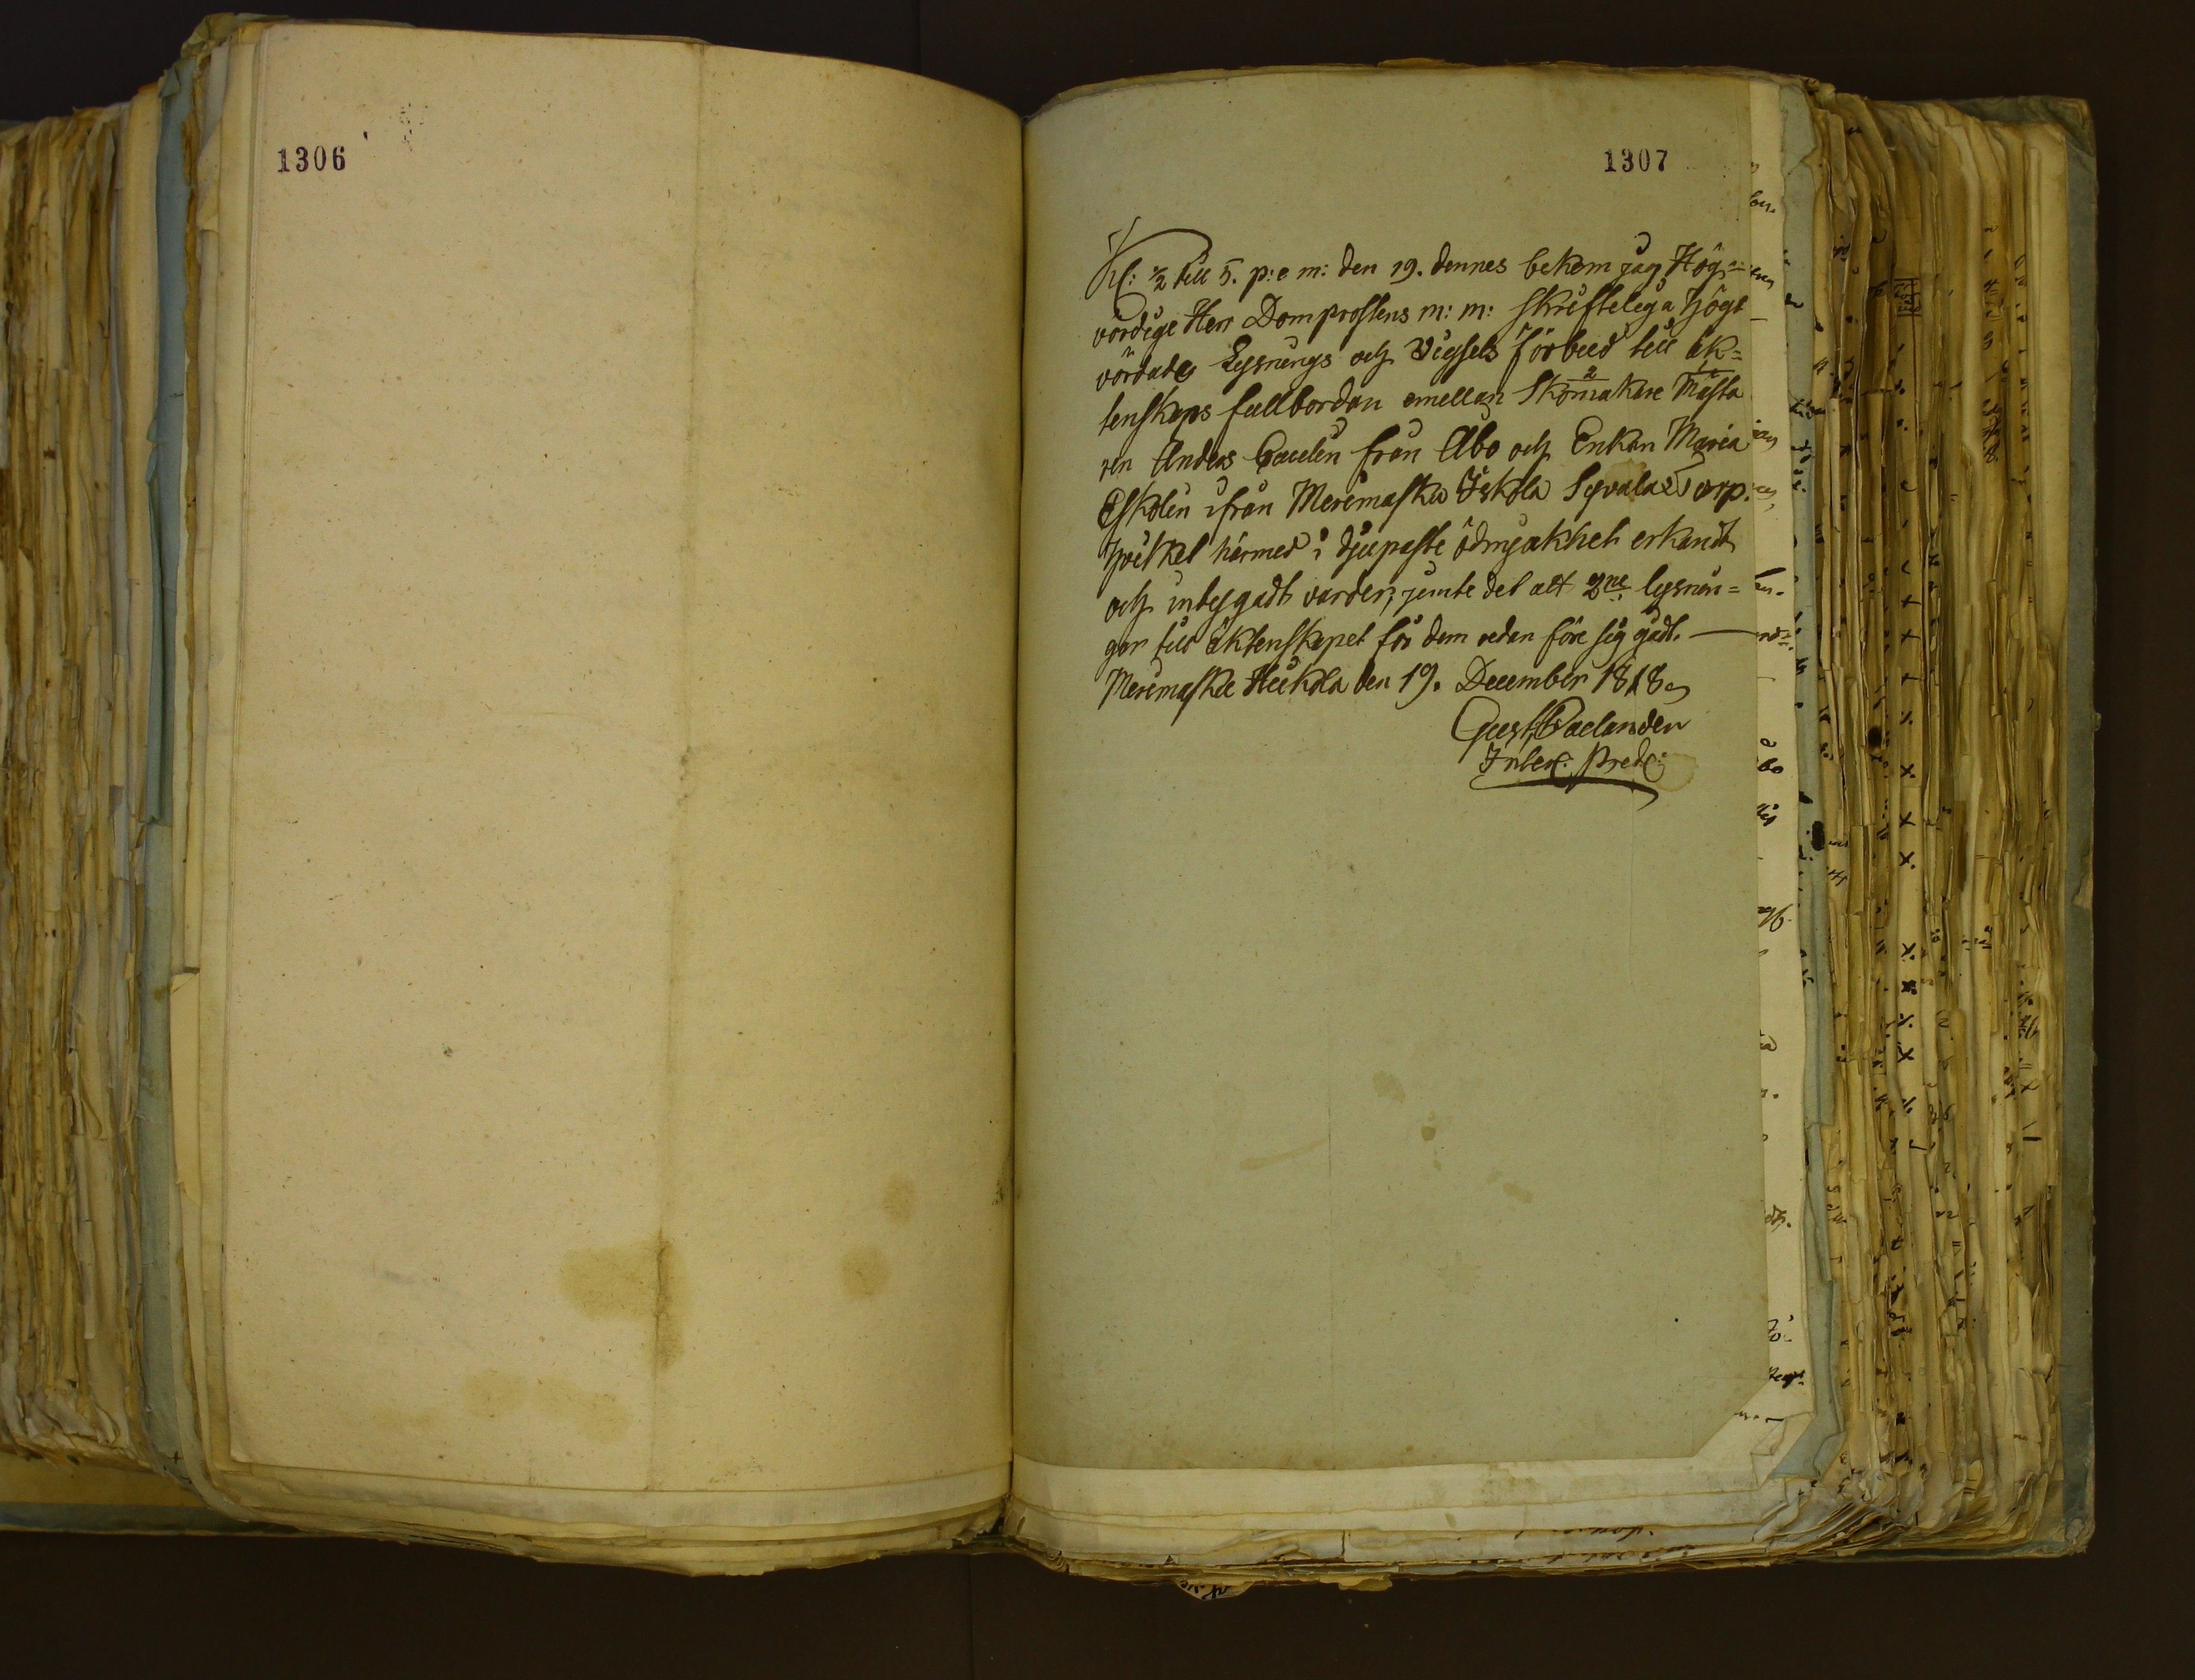 1306
1307
Kl: 1/2 till 5. p: e m: den 19. dennes bekom jag Hög=
vördige Herr Domprostens m: m: skriftelega högt
vördade Lysnings och Vigsels förbud till äk=
tenskaps fullbordan emellan Skomakare Mästa
ren Anders Paulin från Åbo och Enkan Maria
Eskolin ifrån Merimasku Iskola Syvala Torp.
hvilket härmed i djupaste ödmjukhet erkändt
och intygadt varder, jemte det att 2ne lysnin=
gar till äktenskapet för dem redan före sig gådt.
Merimasku den 19. December 1818
Gust. Paelander
Pred: